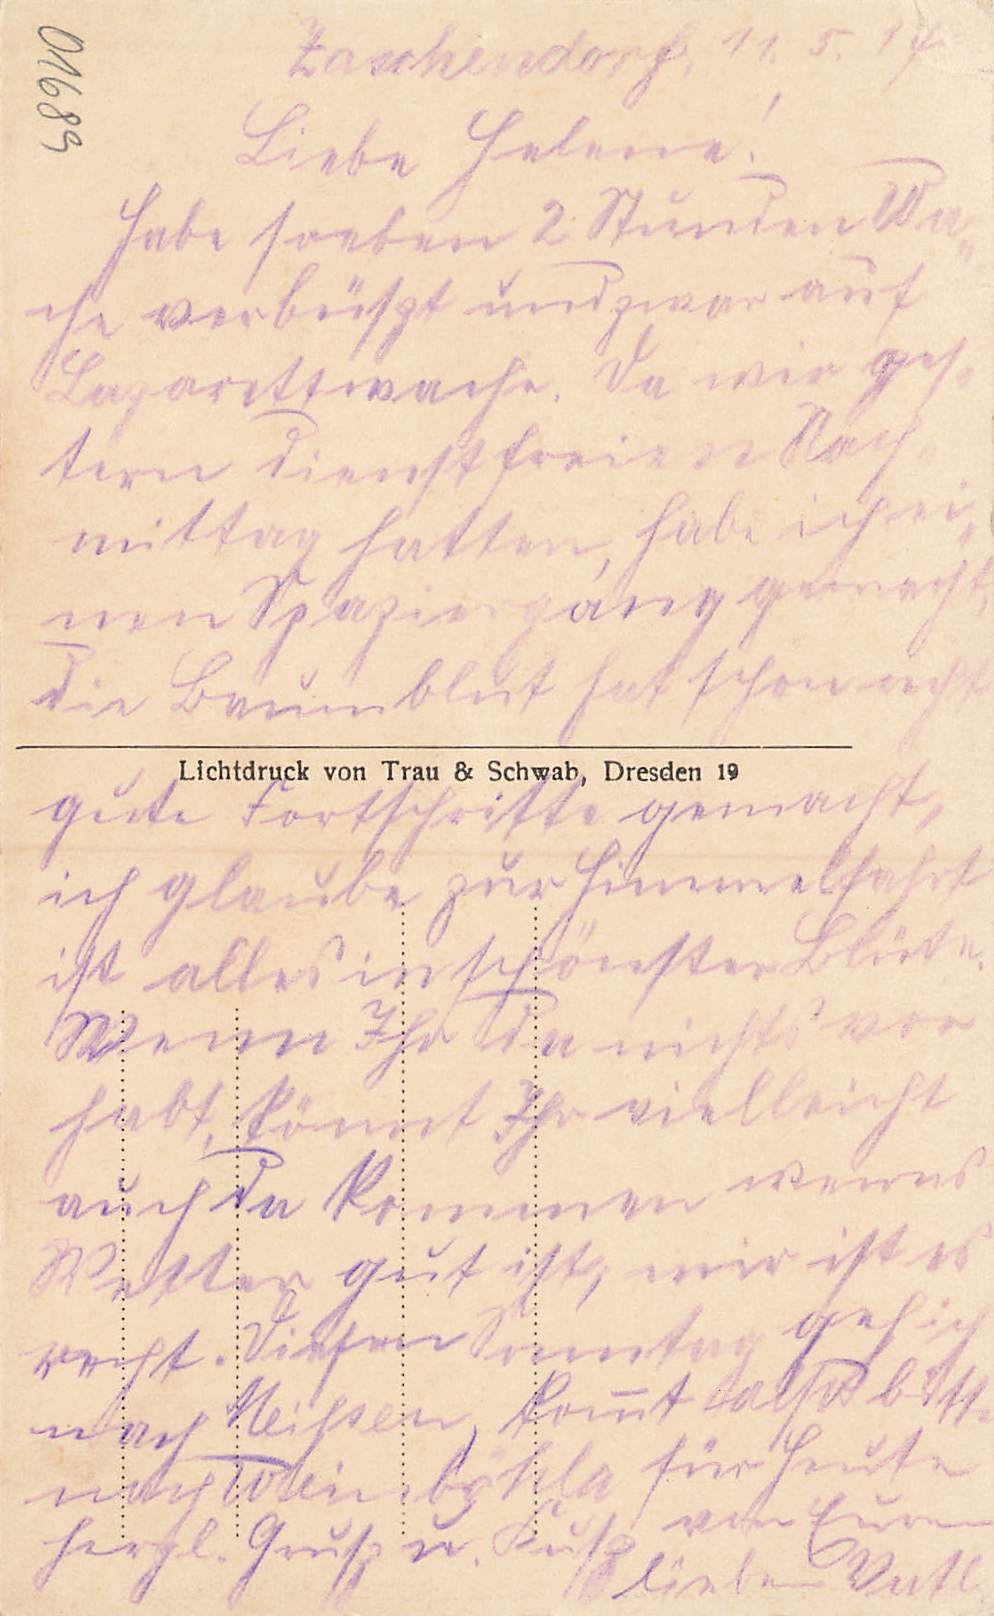 01689
Zaschendorf, 11. 5. 17
Liebe Helene!
Habe soeben 2 Stunden Wa-
che verbüßt und zwar auf
Lazarettwache. Da wir ges-
tern dienstfreien Nach-
mittag hatten, habe ich ei-
nen Spaziergang gemacht,
die Baumblut hat schon recht
Lichtdruck von Trau & Schwab, Dresden 19
gute Fortschritte gemacht,
ich glaube zur Himmelfahrt
ist alles in schönster Blüte.
Wenn Ihr da nichts vor
habt, könnt Ihr vielleicht
auch da kommen wenns
Wetter gut ist, mir ist es
recht. Diesen Sonntag geh ich
nach Meißen, komt also bitte
nach Weinböhla für heute
herzl. Gruß u. Kuß von Euren
lieben Vatl.